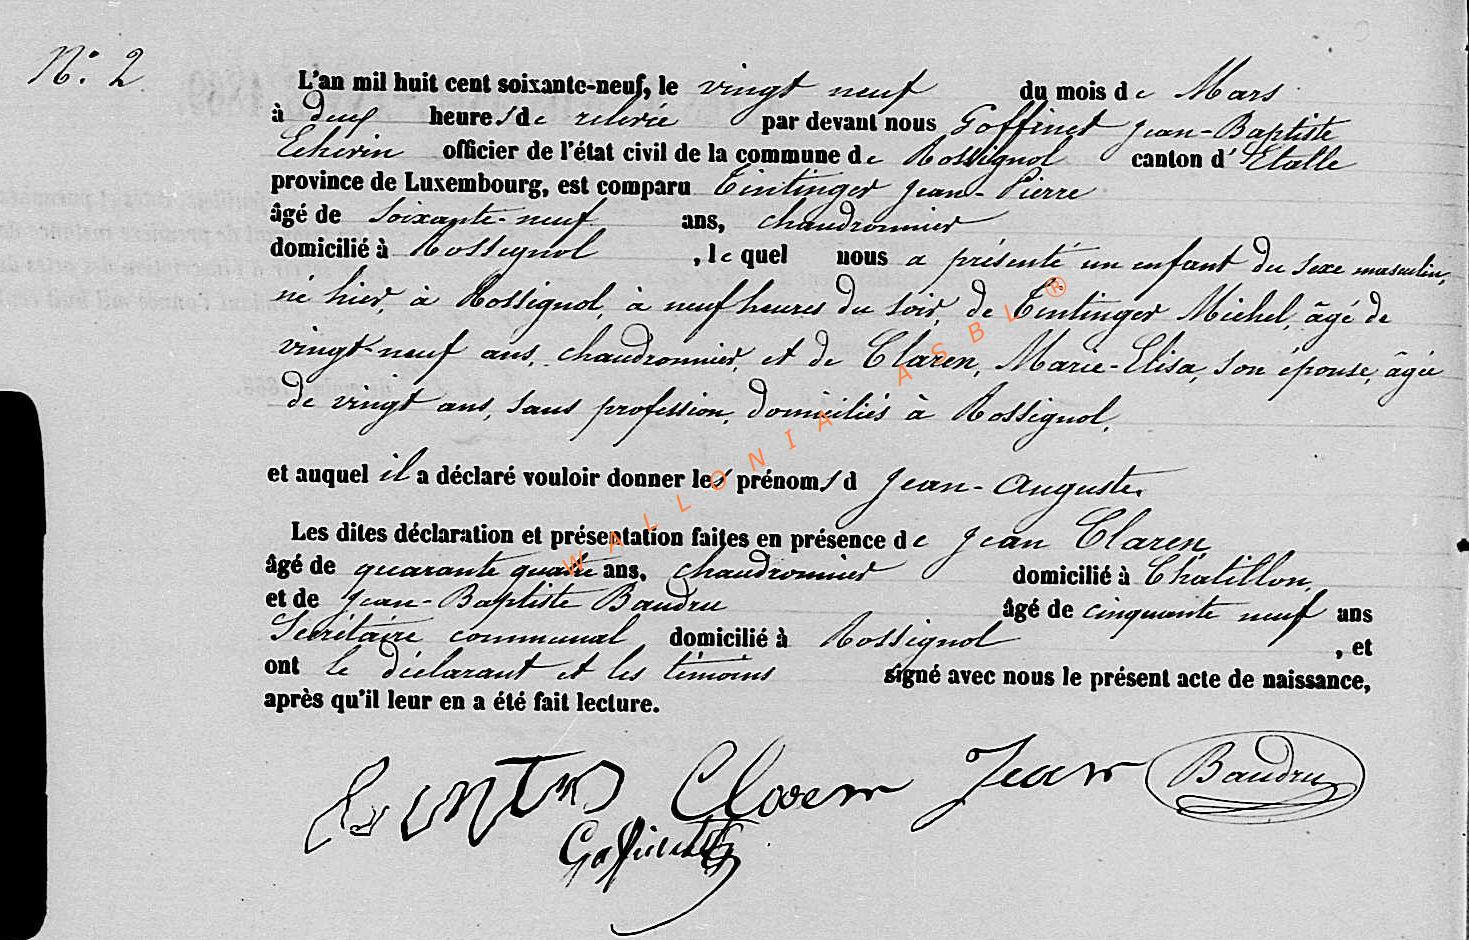 N.° 2.
L'an mil huit cent soixante-neuf, le vingt neuf du mois de Mars
à deux heures de relevée par devant nous Goffinet Jean-Baptiste
Echevin officier de l'état civil de la commune de Rossignol canton d'Etalle
province de Luxembourg, est comparu Tintinger Jean-Pierre
âgé de soixante-neuf ans, chaudronnier
domicilié à Rossignol, le quel nous a présenté un enfant du sexe masculin,
né hier, à Rossignol, à neuf heures du soir, de Tintinger Michel, âgé de
vingt-neuf ans, chaudronnier, et de Claren, Marie-Elisa, son épouse, âgée
de vingt ans, sans profession, domiciliés à Rossignol,
et auquel il a déclaré vouloir donner les prénoms d Jean-Auguste.
Les dites déclaration et présentation faites en présence de Jean Claren,
âgé de quarante quatre ans, chaudronnier domicilié à Châtillon,
et de Jean-Baptiste Baudru âgé de cinquante neuf ans
Secrétaire communal domicilié à Rossignol, et
ont le déclarant et les témoins signé avec nous le présent acte de naissance,
après qu'il leur en a été fait lecture.
Claren Jean Baudru
Goffinet
WALLONIA ASBL ®